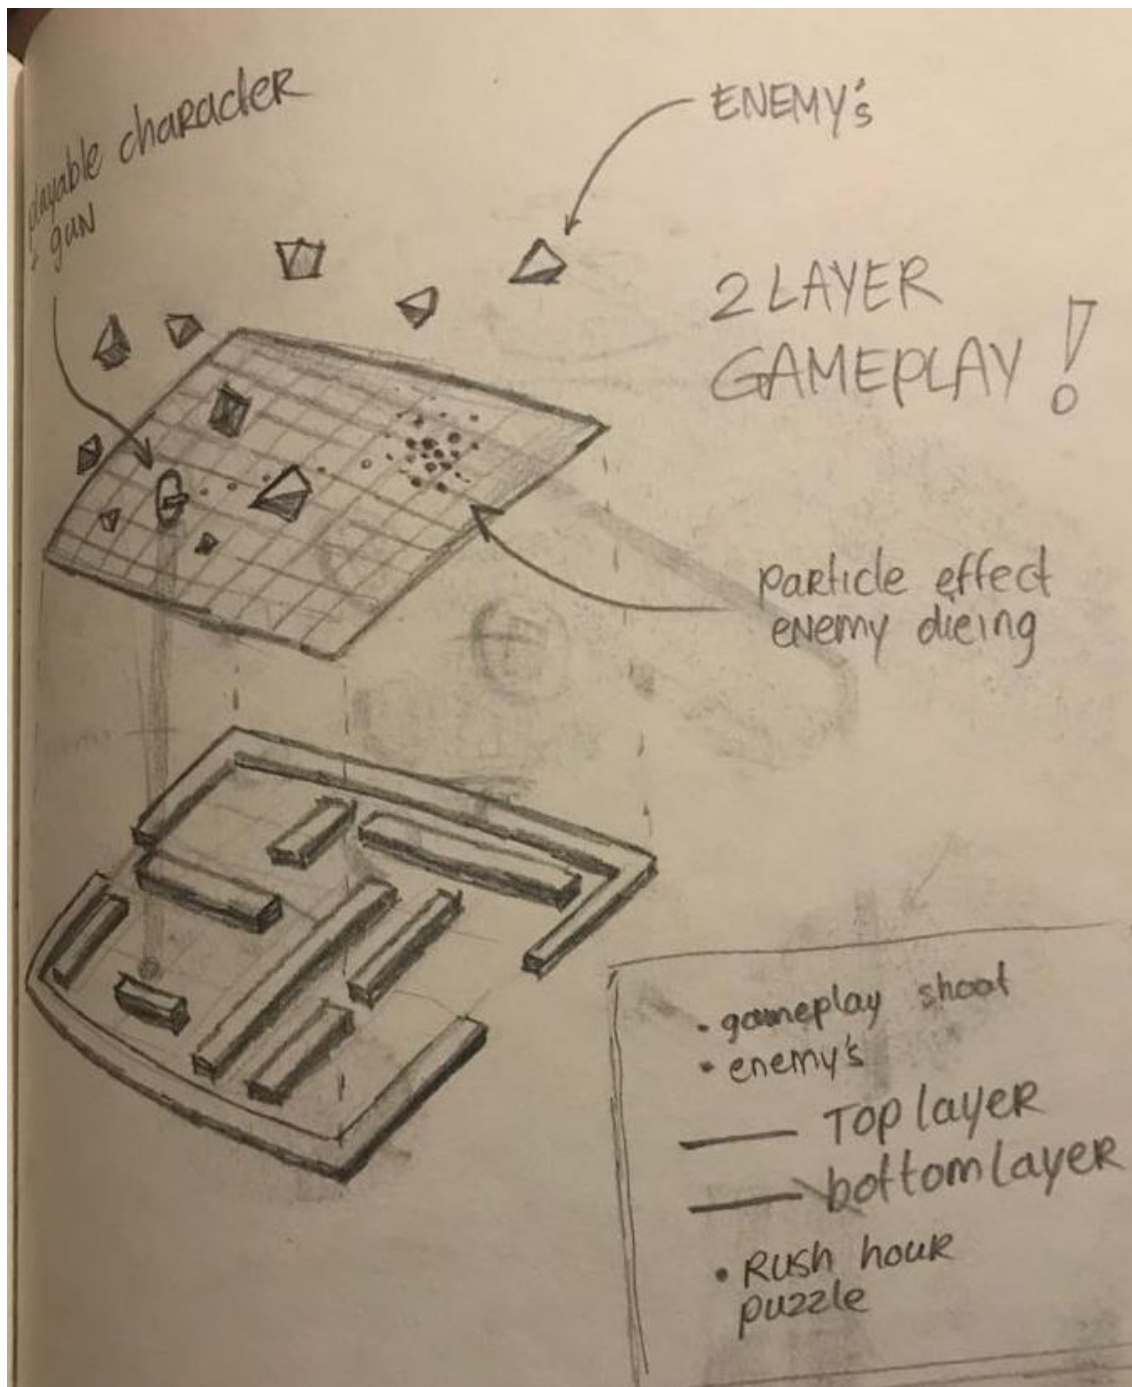 playable character
+ gun
ENEMY's
2 LAYER
GAMEPLAY !
particle effect
enemy dieing
• gameplay shoot
• enemy's
Top layer
bottom layer
• Rush hour
puzzle